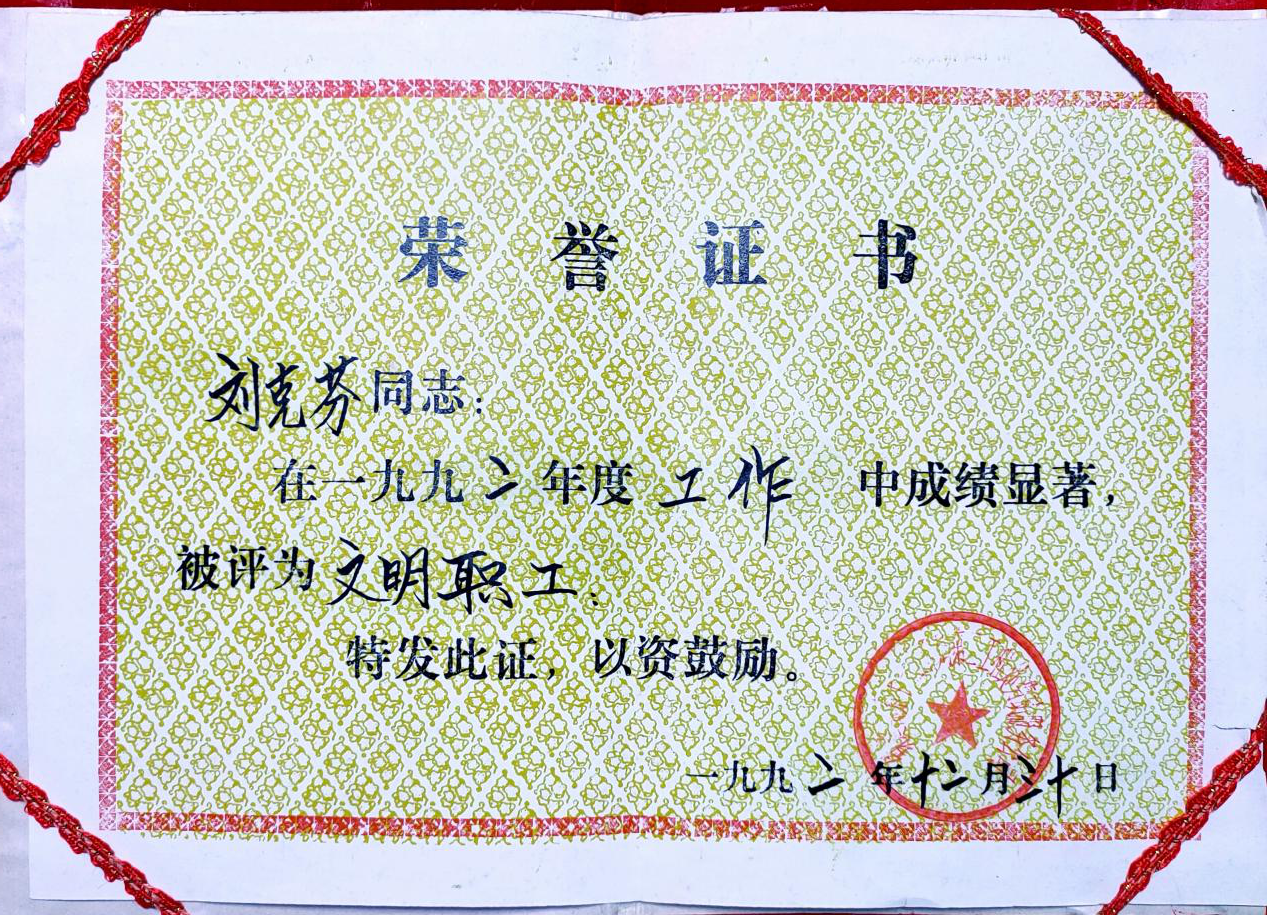 荣誉证书
刘克芬同志：
在一九九二年度工作中成绩显著，
被评为文明职工；
特发此证，以资鼓励。
一九九二年十二月三十日